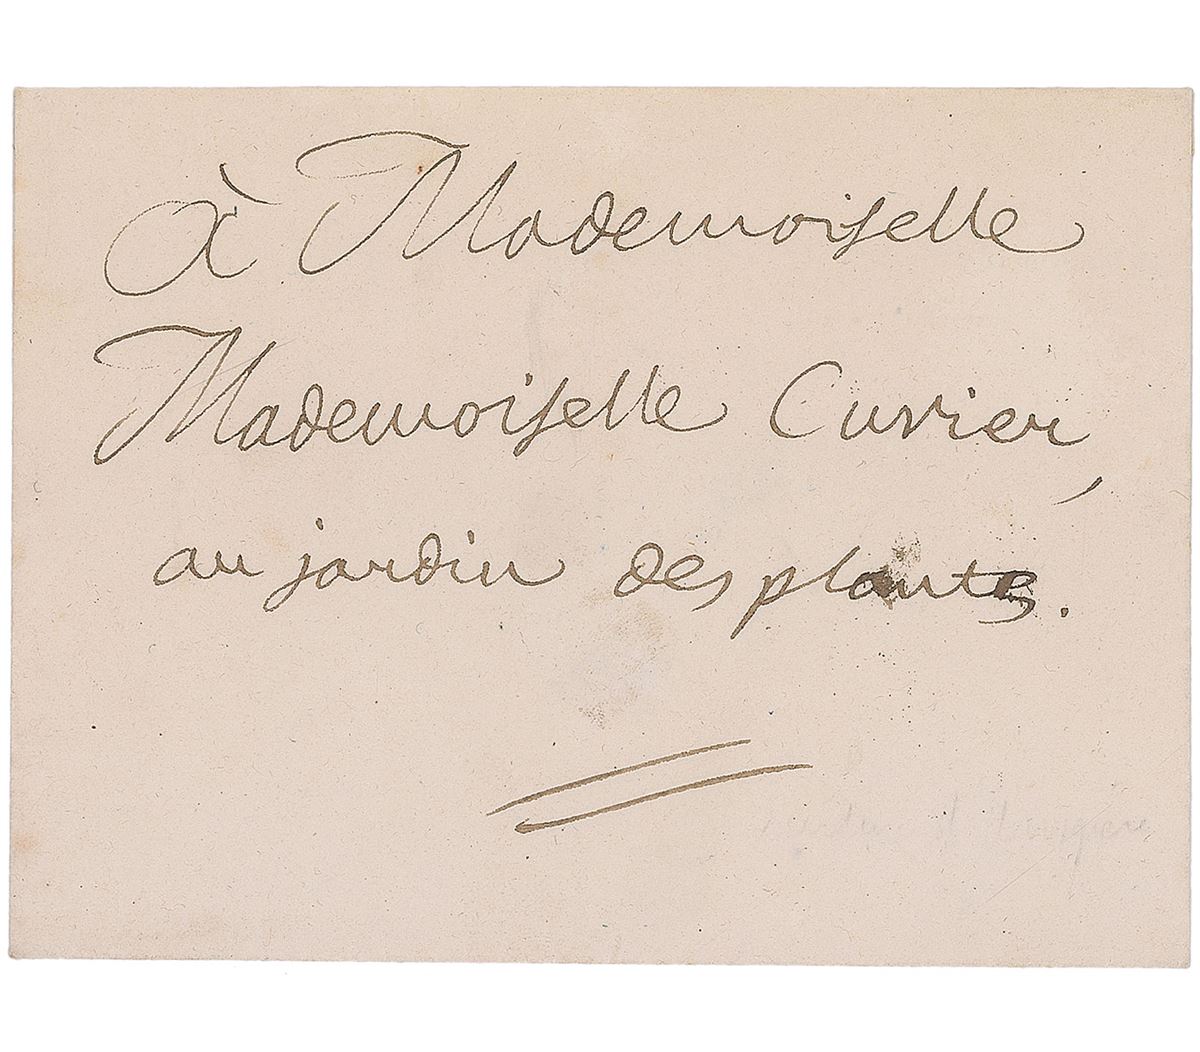 à Mademoiselle
Mademoiselle Cuvier,
au jardin des plantes.